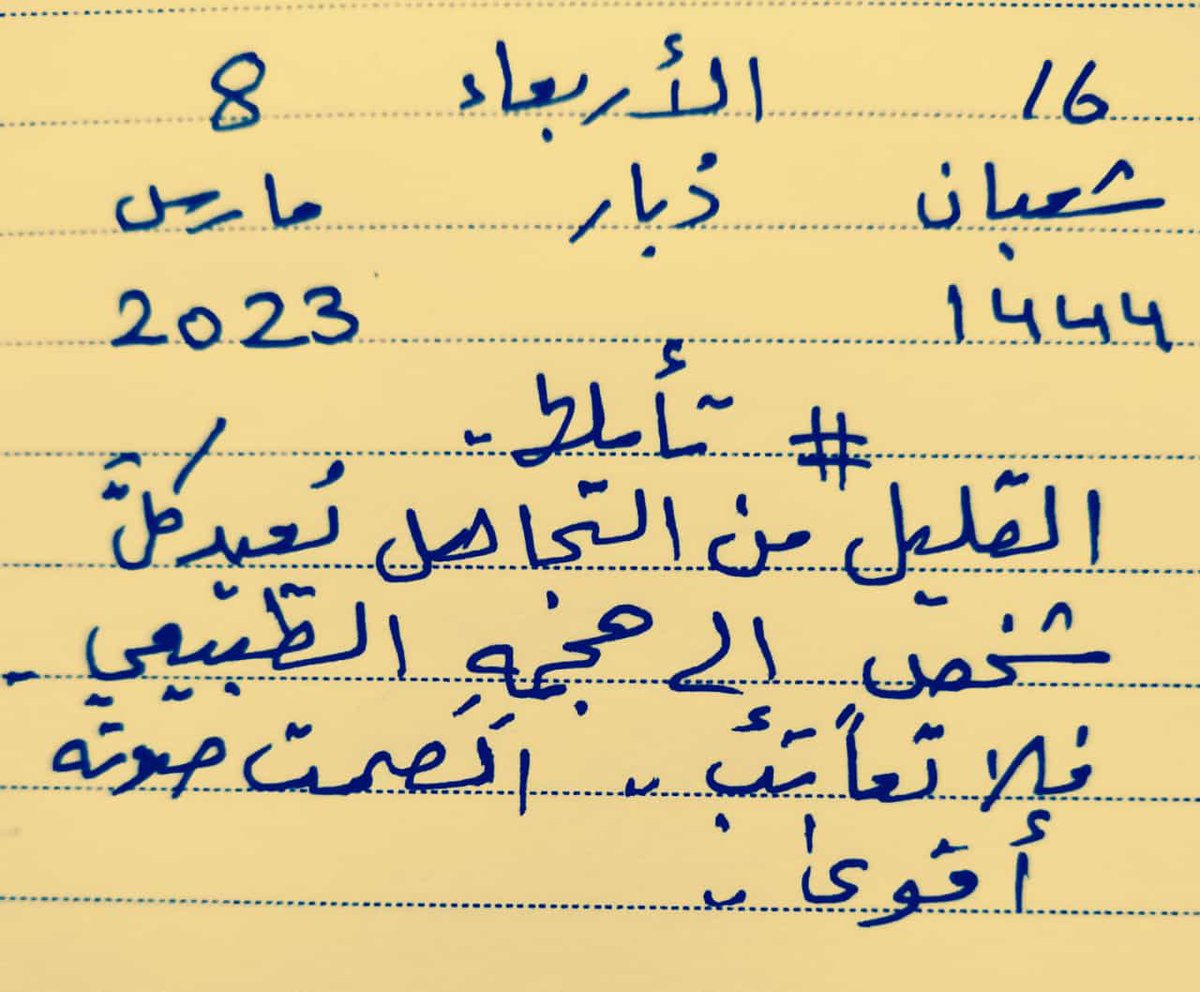 16 الأربعاء 8
شعبان دُبار مارس
1444 2023
# تأملط ..
القليل من التجاهل يُعيد كلَّ
شخص الى حجمِهِ الطّبيعي ..
فلا تُعاتب .. الصمت صوته
أقوىٰ ..